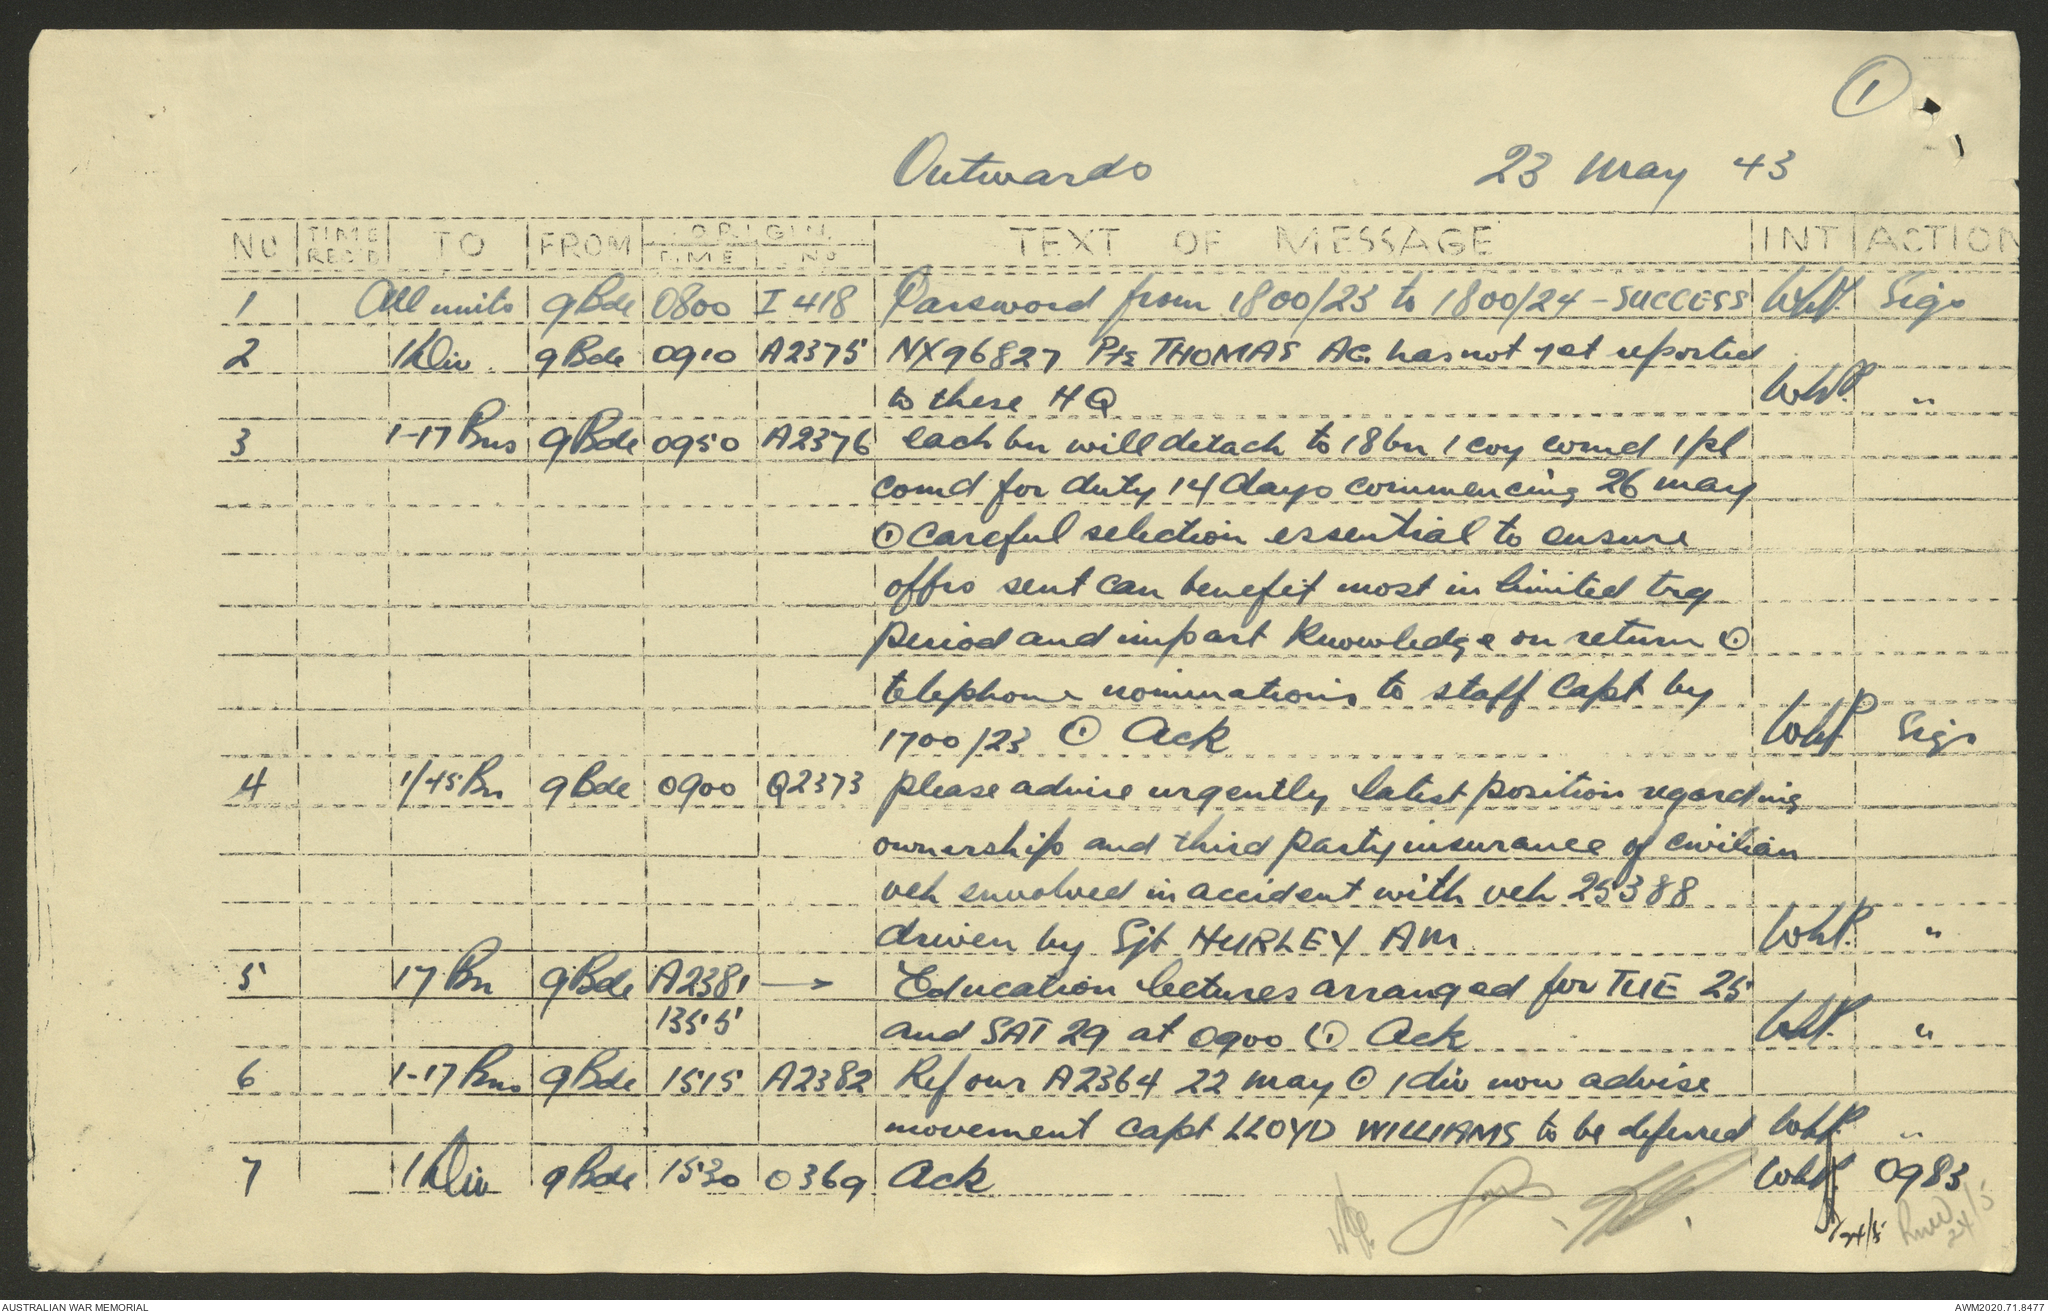 1
Outwards 23 May 43
NO TIME REC'D TO FROM ORIGIN TIME NO TEXT OF MESSAGE INT ACTION
1 All units 9 Bde 0800 I 418 Password from 1800/23 to 1800/24 - SUCCESS WHP. Sigs
2 1 Div 9 Bde 0910 A2375 NX96827 Pte THOMAS AC. has not yet reported
to these HQ WHP. "
3 1-17 Bns 9 Bde 0950 A2376 each bn will detach to 18 bn 1 coy comd 1 pl
comd for duty 14 days commencing 26 may
⊙ careful selection essential to ensure
offrs sent can benefit most in limited trg
period and impart knowledge on return ⊙
telephone nominations to staff capt by
1700/23 ⊙ Ack WHP. Sigs
4 1/45 Bn 9 Bde 0900 Q2373 please advise urgently latest position regarding
ownership and third party insurance of civilian
veh envolved in accident with veh 25388
driven by Sjt HURLEY AM WHP. "
5 17 Bn 9 Bde A2381 → Education lectures arranged for TUE 25
1355 and SAT 29 at 0900 ⊙ Ack WHP. "
6 1-17 Bns 9 Bde 1515 A2382 Ref our A2364 22 may ⊙ 1 div now advise
movement capt LLOYD WILLIAMS to be deferred WHP. "
7 1 Div 9 Bde 1530 O369 Ack WHP. O983
24/5 24/5
AUSTRALIAN WAR MEMORIAL AWM2020.71.8477